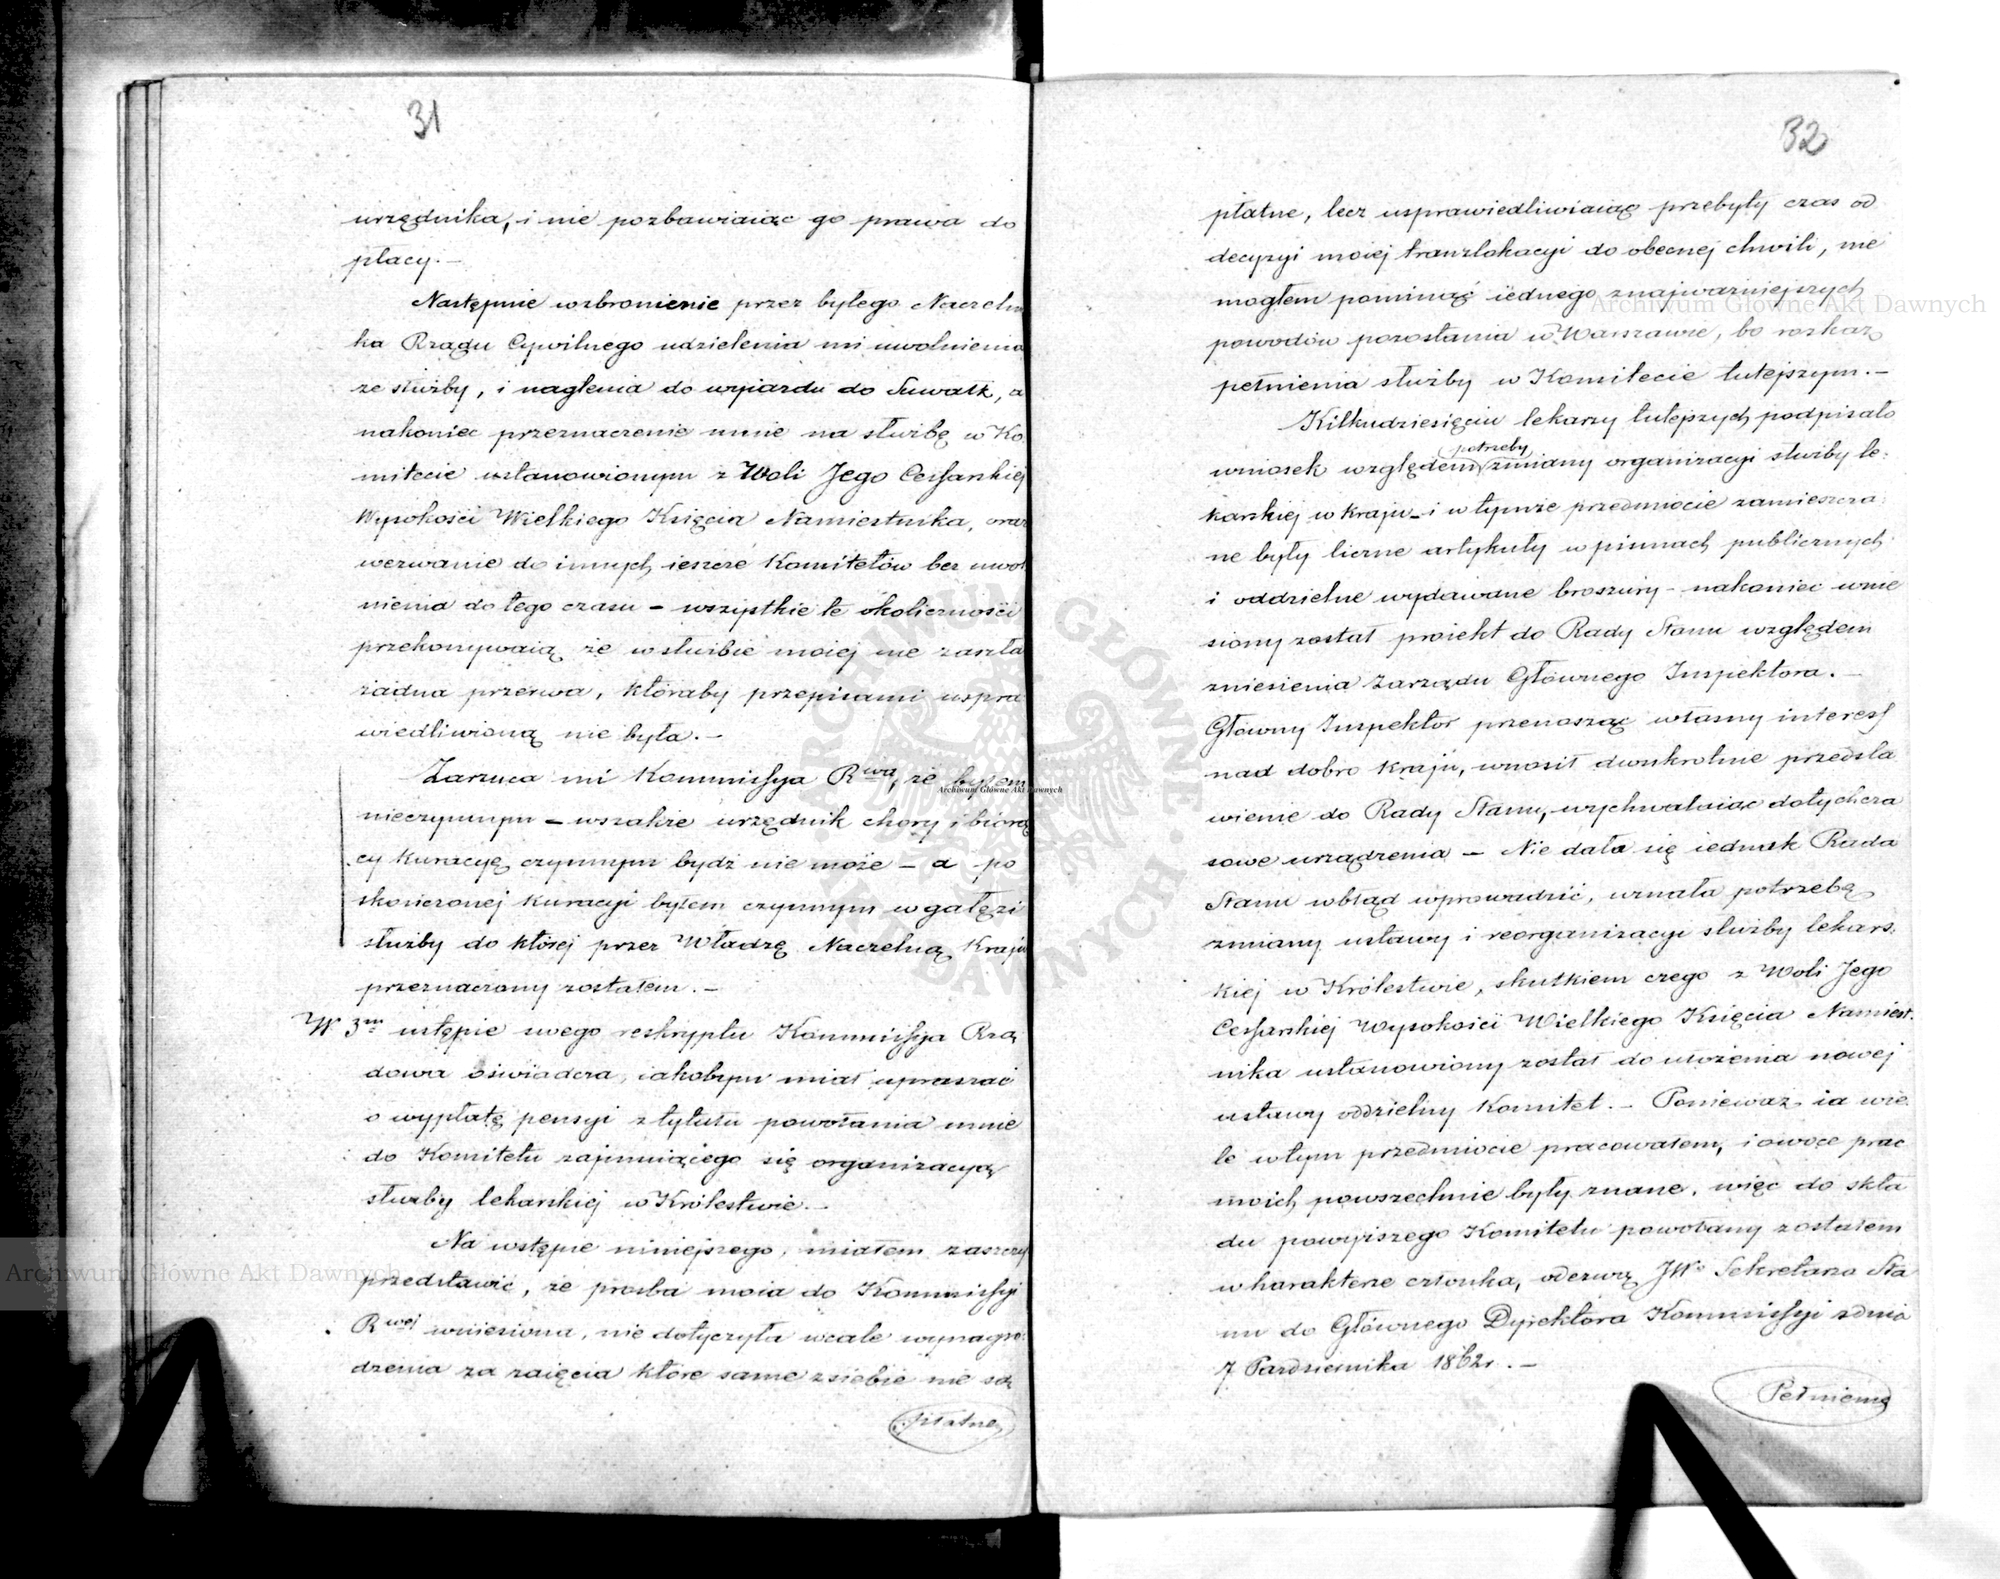 31
urzędnika, i nie pozbawiaiąc go prawa do
płacy. —
Następnie wzbronienie przez byłego Naczelni
ka Rządu Cywilnego udzielenia mi uwolnienia
ze służby, i naglenia do wyiazdu do Suwałk, a
nakoniec przeznaczenie mnie na służbę w Ko
mitecie ustanowionym z Woli Jego Cessarskiej
Wysokości Wielkiego Księcia Namiestnika, oraz
wezwanie do innych ieszcze Komitetów bez uwol
nienia do tego czasu – wszystkie te okoliczności
przekonywaią że w służbie moiej nie zaszła
żadna przerwa, któraby przepisami uspra
wiedliwioną nie była. —
Zarzuca mi Kommissya Rwa, że byłem
nieczynnym – wszakże urzędnik chory i biorą
cy kuracyę czynnym bydź nie może – a po
skończonej kuracyi byłem czynnym w gałęzi
służby do której przez Władzę Naczelną Kraju
przeznaczony zostałem. —
W 3m ustępie swego reskryptu Kommissya Rzą
dowa oświadcza, iakobym miał upraszać
o wypłatę pensyi z tytułu powołania mnie
do Komitetu zajmuiącego się organizacyą
służby lekarskiej w Królestwie. —
Na wstępie niniejszego, miałem zaszczyt
przedstawić, że prośba moia do Kommissyi
Rwej wniesiona, nie dotyczyła wcale wynagro
dzenia za zaięcia które same z siebie nie są
płatne
32
płatne, lecz usprawiedliwiaiąc przebyty czas od
decyzyi moiej tranzlokacyi do obecnej chwili, nie
mogłem pominąć iednego z najważniejszych
powodów pozostania w Warszawie, bo rozkaz
pełnienia służby w Komitecie tutejszym. —
Kilkudziesięciu lekarzy tutejszych podpisało
potrzeby
wniosek względem zmiany organizacyi służby le:
karskiej w kraju – i w tymże przedmiocie zamieszcza:
ne były liczne artykuły w pismach publicznych
i oddzielne wydawane broszury – nakoniec wnie
siony został proiekt do Rady Stanu względem
zniesienia Zarządu Głównego Inspektora. —
Główny Inspektor przenosząc własny interess
nad dobro kraju, wnosił dwukrotnie przedsta
wienie do Rady Stanu, wychwalaiąc dotychcza
sowe urządzenia – Nie dała się iednak Rada
Stanu w błąd wprowadzić, uznała potrzebę
zmiany ustawy i reorganizacyi służby lekars.
kiej w Królestwie, skutkiem czego z Woli Jego
Cessarskiej Wysokości Wielkiego Księcia Namiest.
nika ustanowiony został do ułożenia nowej
ustawy oddzielny Komitet. – Ponieważ ia wie
le w tym przedmiocie pracowałem, i owoce prac
moich powszechnie były znane, więc do skła
du powyższego Komitetu powołany zostałem
w harakterze członka, odezwą JWo Sekretarza Sta
nu do Głównego Dyrektora Kommissyi z dnia
7 Październiка 1862 r. —
Pełnienie
Archiwum Główne Akt Dawnych
Archiwum Główne Akt Dawnych
Archiwum Główne Akt Dawnych
ARCHIWUM GŁÓWNE AKT DAWNYCH